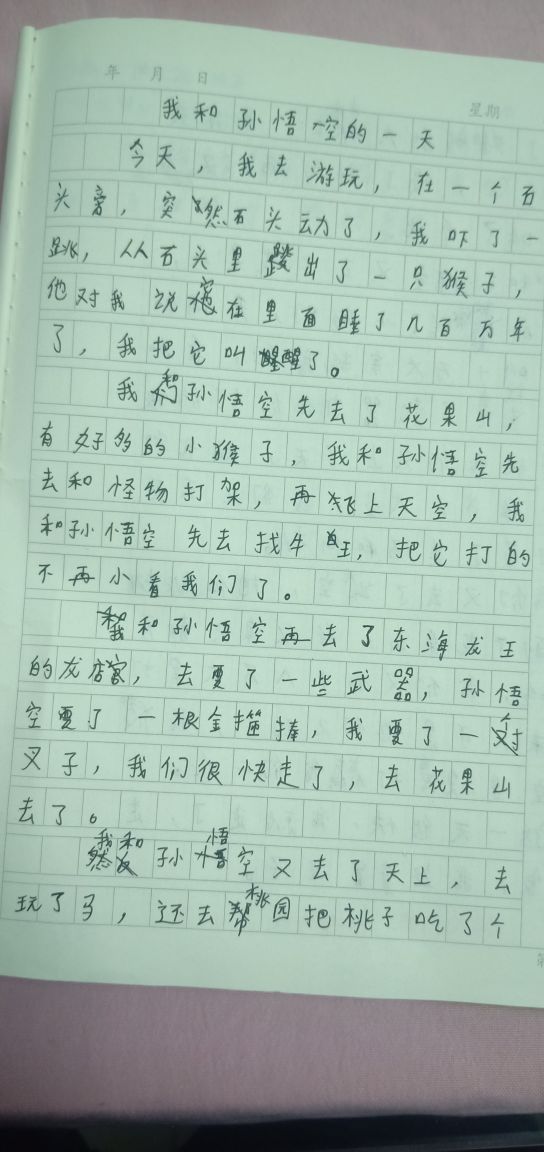 年 月 日
星期
我和孙悟空的一天
今天，我去游玩，在一个石
头旁，突然石头动了，我吓了一
跳，从石头里蹬出了一只猴子，
他对我说它在里面睡了几百万年
了，我把它叫醒了。
我和孙悟空先去了花果山，
有好多的小猴子，我和孙悟空先
去和怪物打架，再飞上天空，我
和孙悟空先去找牛王，把它打的
不再小看我们了。
我和孙悟空再去了东海龙王
的龙宫，去要了一些武器，孙悟
空要了一根金箍捧，我要了一个
叉子，我们很快走了，去花果山
去了。
我和孙悟空又去了天上，去
玩了马，还去桃园把桃子吃了个